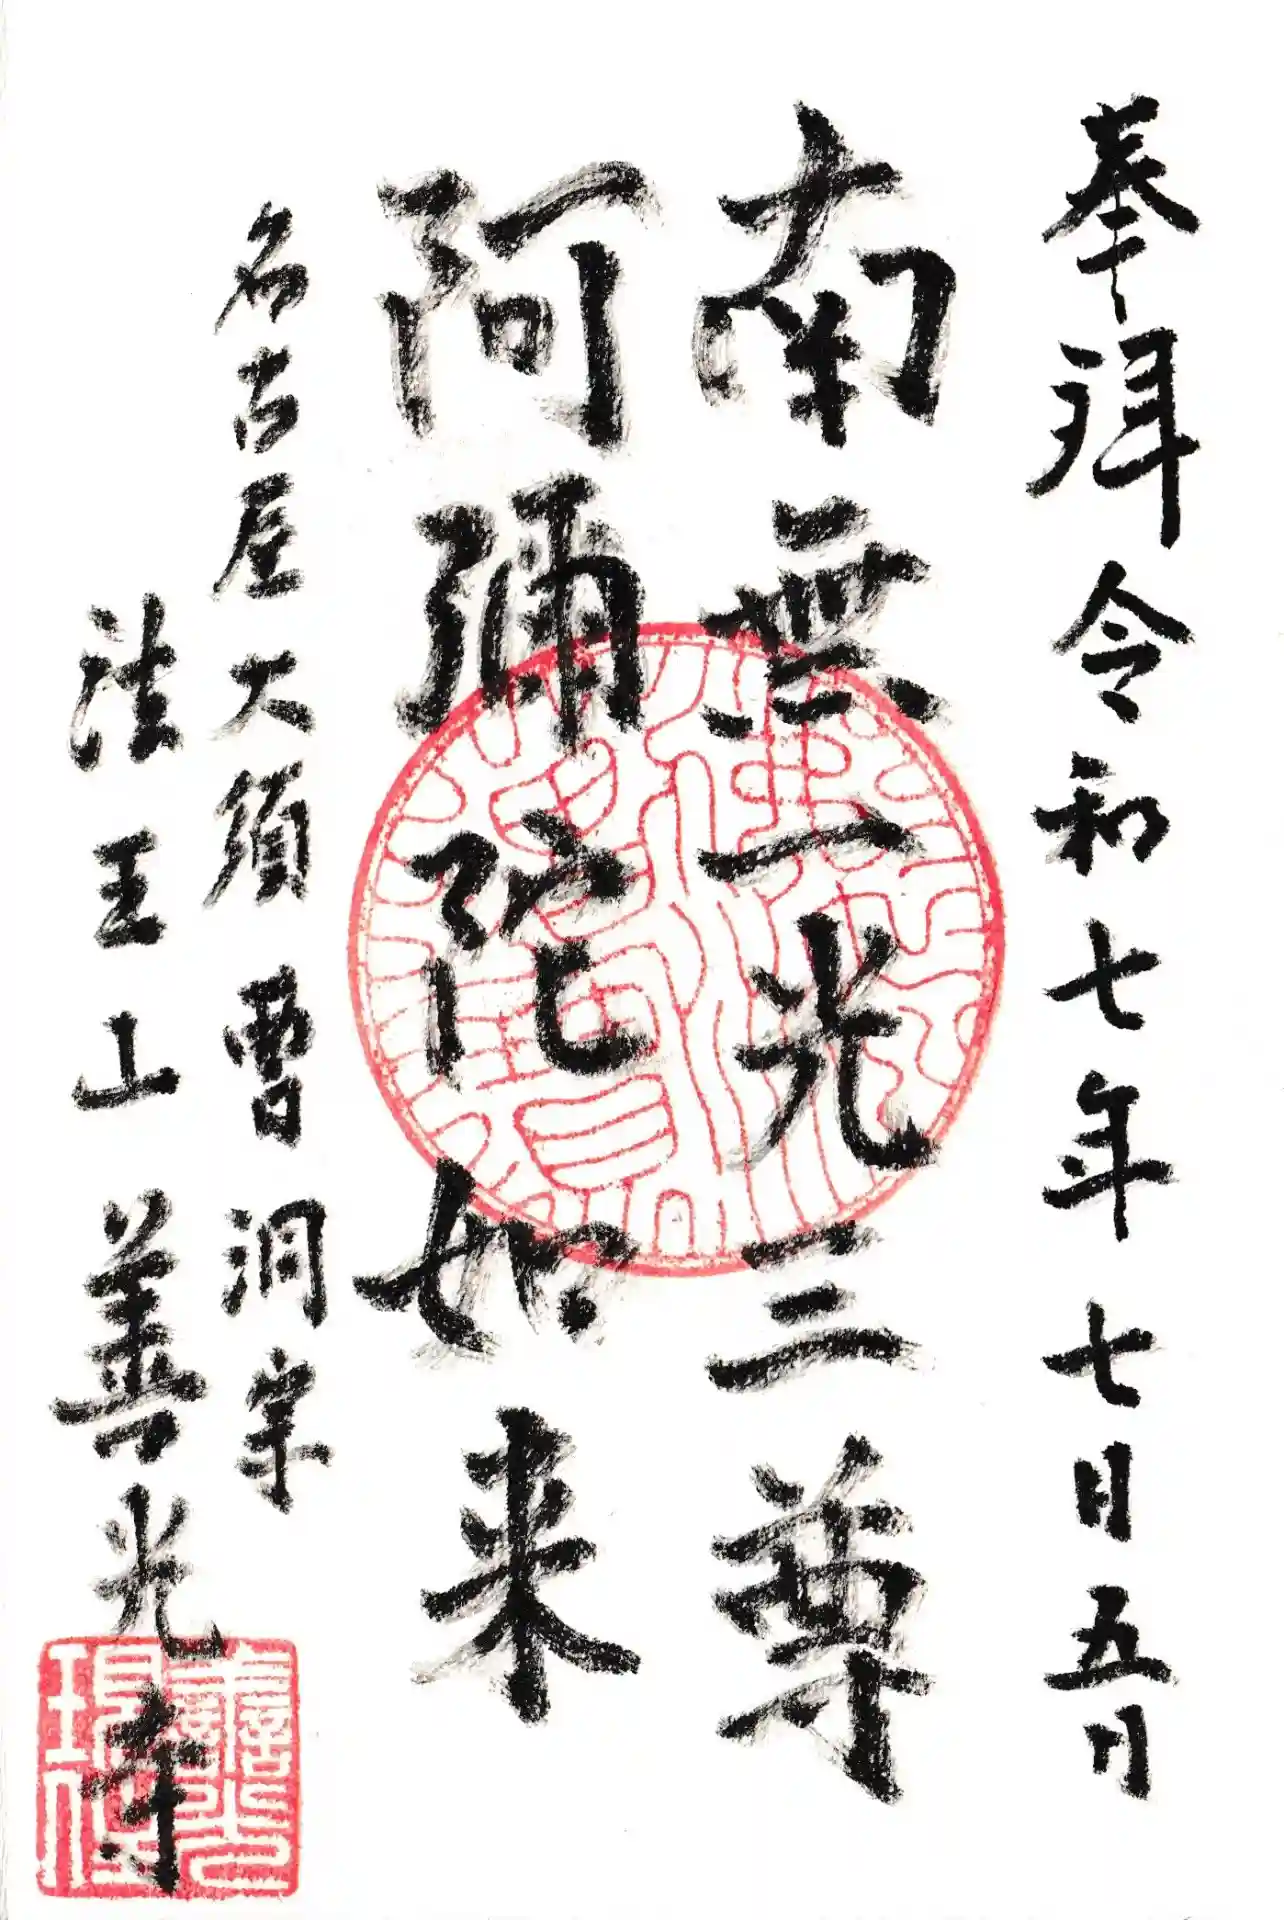 奉拝 令和七年 七日五月
南無一光三尊
阿彌陀如来
名古屋大須 曹洞宗
法王山 善光寺